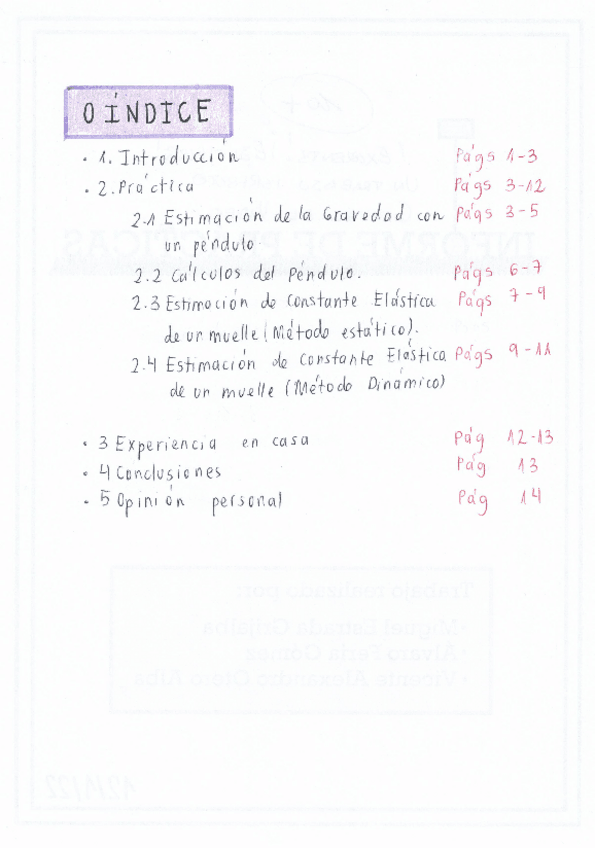 0 ÍNDICE
· 1. Introducción Págs 1-3
· 2. Práctica Págs 3-12
2.1 Estimación de la Gravedad con Págs 3-5
un péndulo.
2.2 Cálculos del Péndulo. Págs 6-7
2.3 Estimación de Constante Elástica Págs 7-9
de un muelle (Método estático).
2.4 Estimación de Constante Elástica Págs 9-11
de un muelle (Método Dinámico)
· 3 Experiencia en casa Pág 12-13
· 4 Conclusiones Pág 13
· 5 Opinión personal Pág 14
INFORME DE PRÁCTICAS
Trabajo realizado por:
·Miguel Estrada Grijalba
·Álvaro Feria Gómez
·Vicente Alexandru Otero Alba